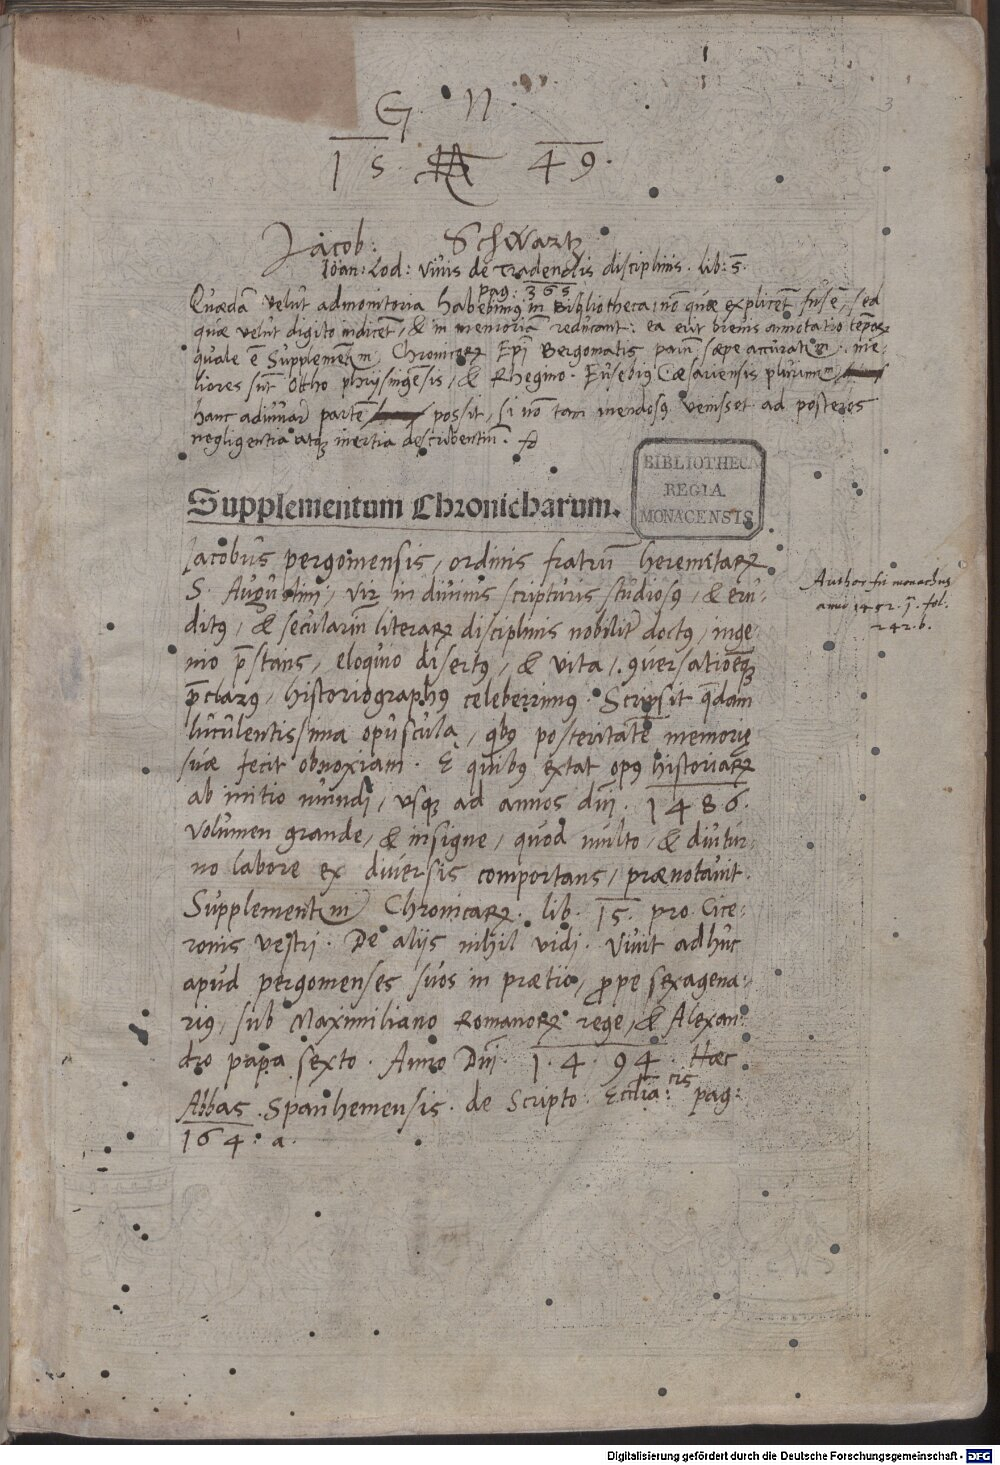 3
G. N.
15. 49.
Iacob: Schwartz
Ioan: Lod: Viuis de Tradendis disciplinis. lib: 5.
pag. 365
Quædā velut admonitoria habebimus in Bibliotheca, nō quæ explicēt fusē, sed
quæ velut digito indicēt, & in memoriā reducant: ea erit breuis annotatio tēporꝝ
quale ē Supplementum, Chronicorꝝ Epī Bergomatis, parum sæpe accuratum. me-
liores sūt Otho phrysingēsis, & Rhegino. Eusebiꝰ Cæsariensis plurimum
hanc adiuuare partē possit, si nō tam mendosꝰ venisset ad posteros
negligentia atqꝫ inertia describentiū.
BIBLIOTHECA
REGIA
MONACENSIS
Supplementum Chronicharum.
Iacobus pergomensis, ordinis fratrū heremitarꝝ
S. Augustini, vir in diuinis scripturis studiosꝰ, & eru-
ditꝰ, & secularium literarꝝ disciplinis nobiliter doctꝰ, inge
nio p̄stans, eloquio disertꝰ, & vita, ꝯuersationēqꝫ
p̄clarꝰ, historiographꝰ celeberrimꝰ. Scripsit quædam
luculentissima opuscula, qbꝰ posteritatē memorię
suæ fecit obnoxiam. E quibꝰ extat opꝰ historiarꝝ
ab initio mundi, vsqꝫ ad annos dnī. 1486.
volumen grande, & insigne, quod multo, & diutur-
no labore ex diuersis comportans, prænotauit.
Supplementum Chronicarꝝ. lib. 15. pro Cice-
ronis vestri. De alijs nihil vidi. Viuit adhuc
apud pergomenses suos in prætio, ꝓpe sexagena-
riꝰ, sub Maximiliano Romanorꝝ rege, & Alexan-
dro papa sexto. Anno Dnī. 1.4.94. Hæc
Abbas Spanhemensis. de Scripto: Ecclia:cis pag:
164: a.
Author fit monachus
anno 1452. fol.
242.b.
Digitalisierung gefördert durch die Deutsche Forschungsgemeinschaft - DFG